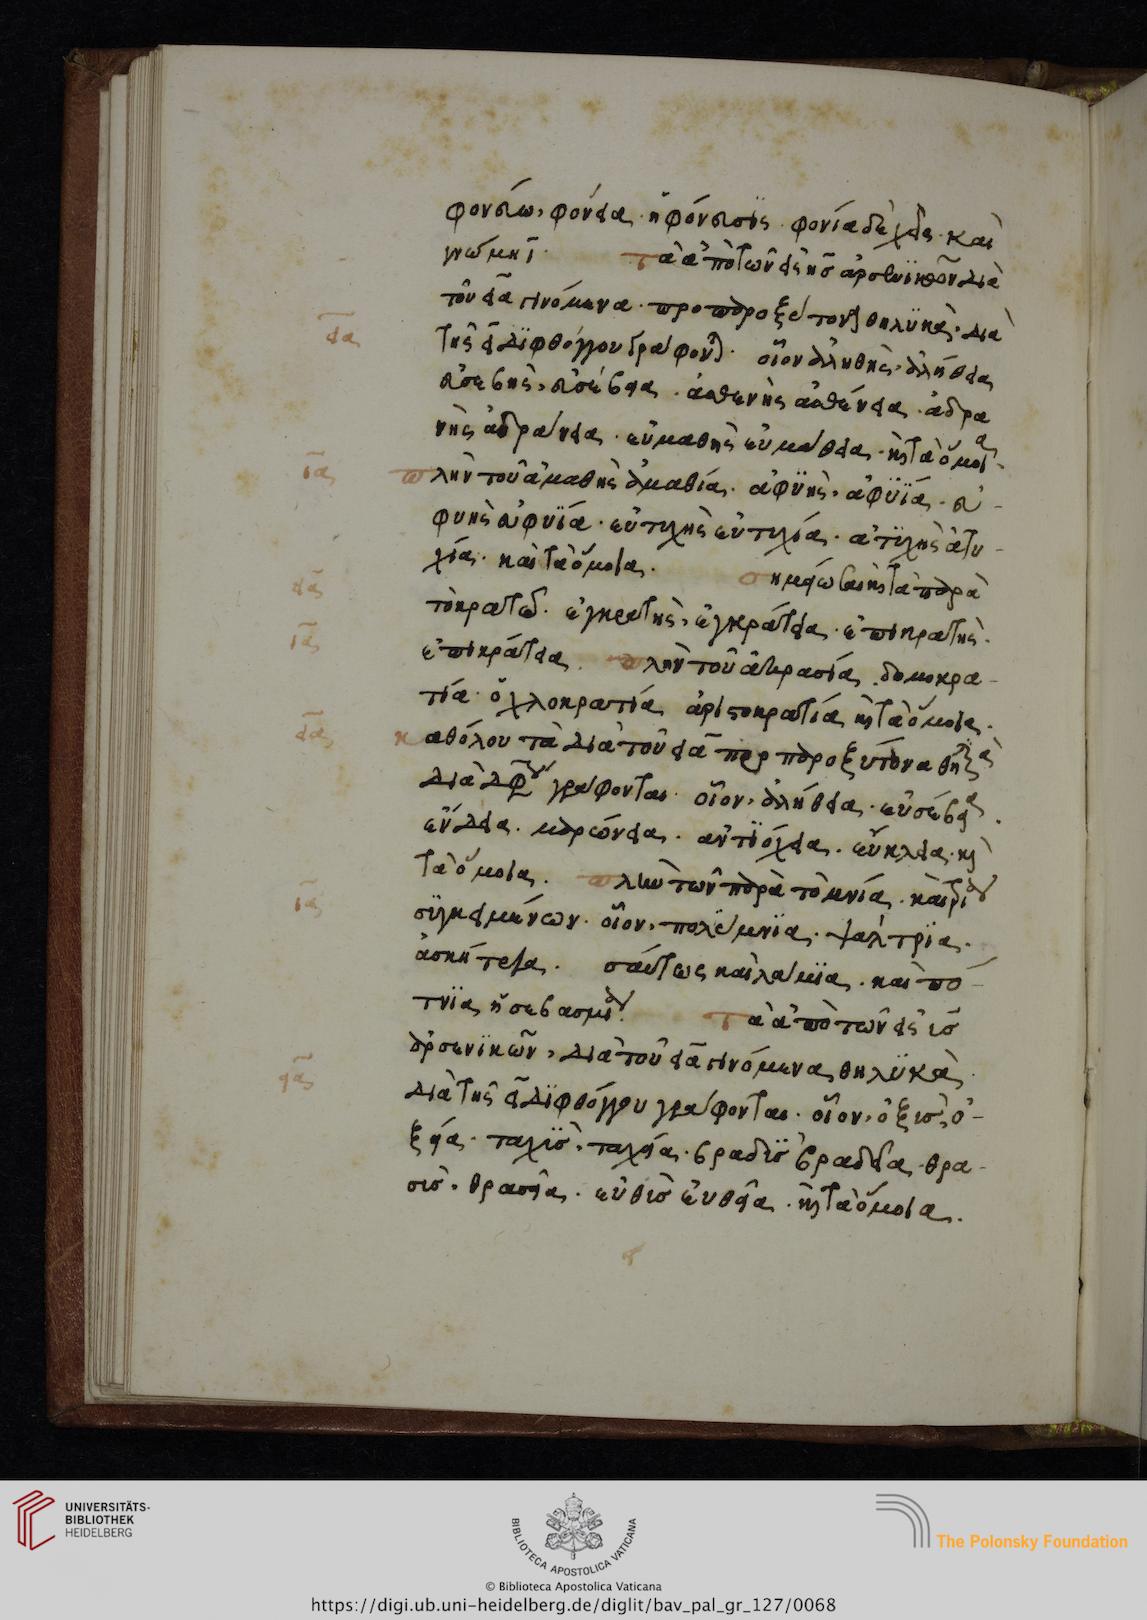 φονεύω, φονεία. ἡ φόνευσϊς. φονία δὲ χεὶρ. καὶ
γνώμη ϊ. τὰ ἀπὸ τῶν εἰς ης ἀρσενϊκῶν διὰ
τοῦ εια γινόμενα. προπαροξύτονα θηλϋκὰ, διὰ
τῆς ει διφθόγγου γράφονται. οἷον ἀληθὴς, ἀλήθεια
εὐσεβὴς, εὐσέβεια. ἀσθενὴς ἀσθένεια. ἀδρα
νὴς ἀδράνεια. εὐμαθὴς εὐμάθεια. καὶ τὰ ὅμοια.
πλὴν τοῦ ἀμαθὴς ἀμαθία. ἀφϋὴς, ἀφϋΐα. εὐ-
φυὴς εὐφυΐα. εὐτυχὴς εὐτυχία. ἀτϋχὴς ἀτυ-
χία. καὶ τὰ ὅμοια. σημείωσαι καὶ τὰ παρὰ
τὸ κρατῶ. ἐγκρατὴς, ἐγκράτεια. ἐπικρατὴς.
ἐπικράτεια. πλὴν τοῦ ἀκρασία. δημοκρα-
τία. ὀχλοκρατία ἀριστοκρατία καὶ τὰ ὅμοια.
καθόλου τὰ διὰ τοῦ εια προπαροξύτονα θηλυκὰ
διὰ διφθόγγου γράφονται. οἷον, ἀλήθεια. εὐσέβεια.
εὔδεια. μαρώνεια. ἀντϊόχεια. εὔκλεια. καὶ
τὰ ὅμοια. πλὴν τῶν παρὰ τὸ μνία. καὶ τρία
συγκειμένων. οἷον, πολύμνϊα. ψάλτρϊα.
ἀσκήτρια. σαύτως καὶ λάμϊα. καὶ πό-
τνϊα ἡ σεβασμία. τὰ ἀπὸ τῶν εἰς ις
ἀρσενϊκῶν, διὰ τοῦ εια γινόμενα θηλϋκὰ
διὰ τῆς ει διφθόγγου γράφονται. οἷον, ὀξὶς, ὀ-
ξεία. ταχὶς, ταχεία. βραδὶς βραδεία. θρα-
σὶς, θρασεῖα. εὐθὶς εὐθεῖα. καὶ τὰ ὅμοια.
εια
ια
εια
ια
εια
ια
εια
UNIVERSITÄTS-
BIBLIOTHEK
HEIDELBERG
BIBLIOTECA APOSTOLICA VATICANA
The Polonsky Foundation
© Biblioteca Apostolica Vaticana
https://digi.ub.uni-heidelberg.de/diglit/bav_pal_gr_127/0068